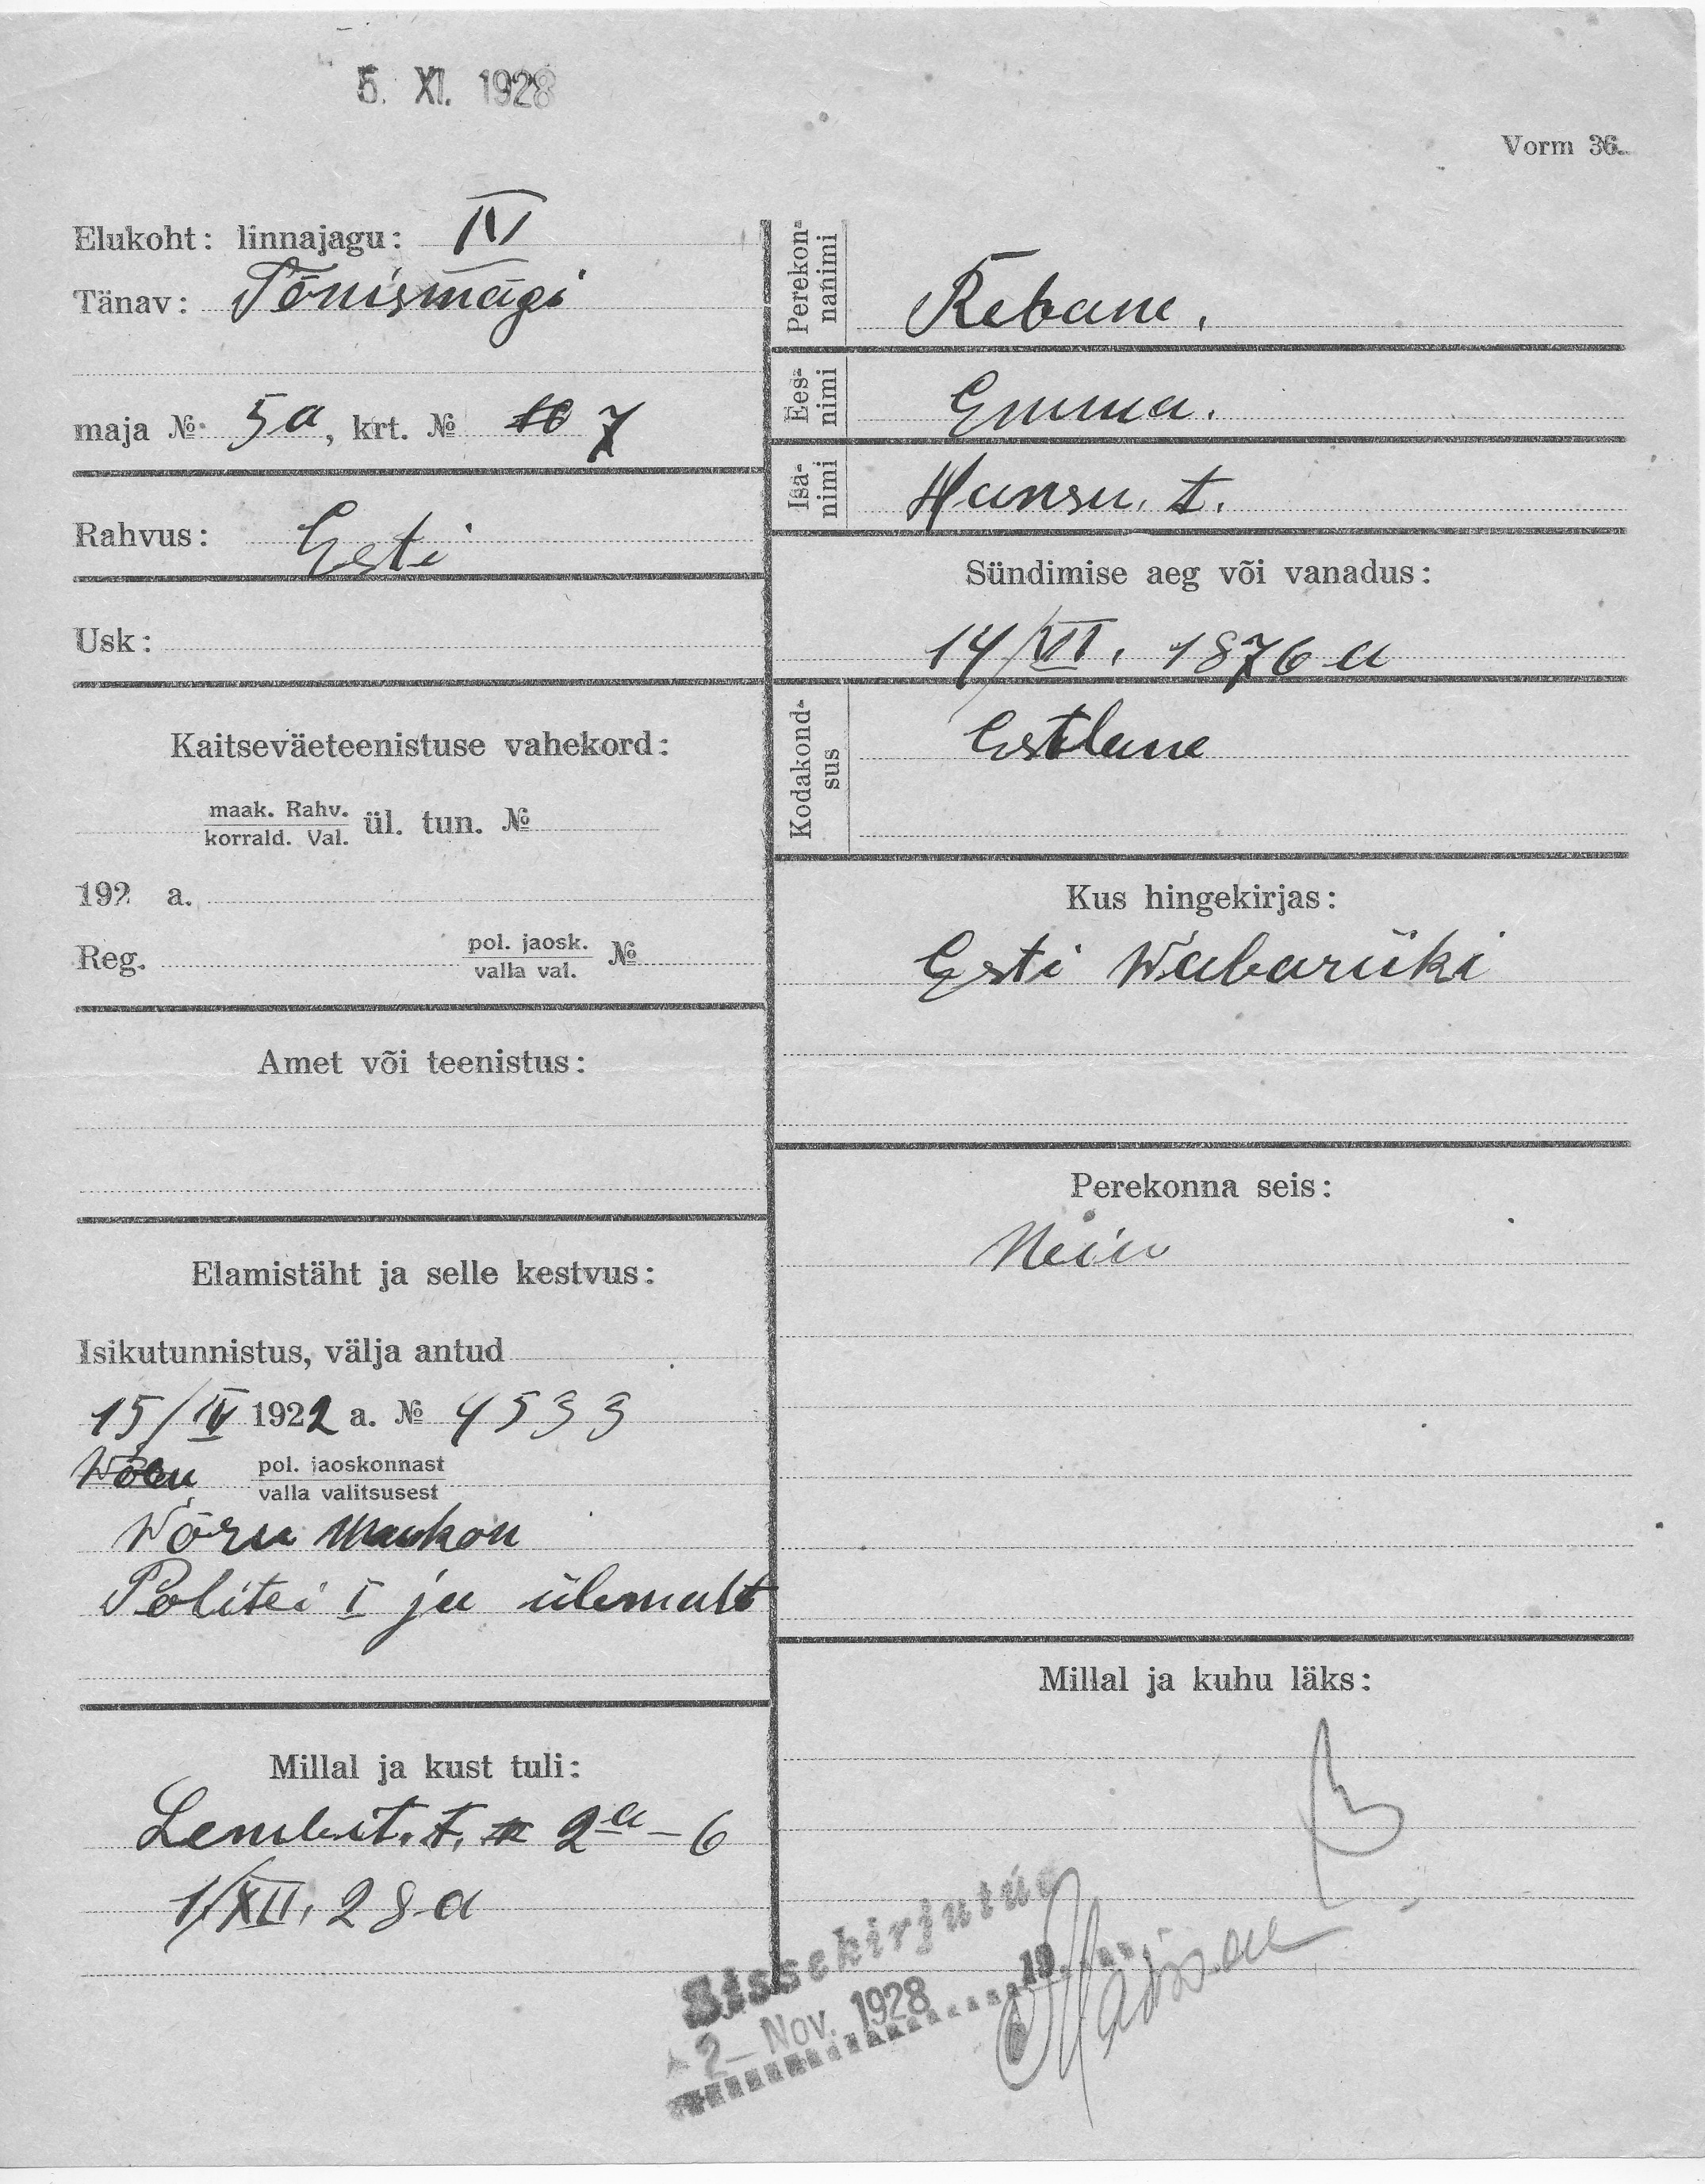 5. XI. 1928
Vorm 36.
Elukoht: linnajagu: IV
Tänav: Tõnismägi
maja № 5a, krt. № 7
Rahvus: Eesti
Usk:
Kaitseväeteenistuse vahekord:
maak. Rahv.
korrald. Val.
ül. tun. №
192 a.
Reg. pol. jaosk. №
valla val.
Amet või teenistus:
Elamistäht ja selle kestvus:
Isikutunnistus, välja antud
15/IV 1922 a. № 4533
pol. jaoskonnast
valla valitsusest
Wõru Maakon
Politei I ja ülemalt
Millal ja kust tuli:
Lembit. t. 2a-6
1/XII. 28 a
Perekon-
nanimi
Rebane.
Ees-
nimi
Emma.
Isa-
nimi
Hansu. t.
Sündimise aeg või vanadus:
14/VII. 1876 a
Kodakond-
sus
Estlane
Kus hingekirjas:
Eesti Wabariiki
Perekonna seis:
Neiu
Millal ja kuhu läks:
Sissekirjutud
2 – Nov. 1928 19